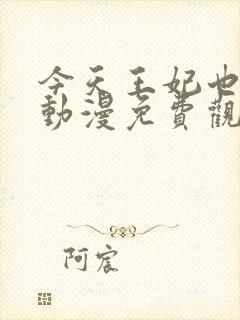 今天王妃也
動漫免費觀
阿宸